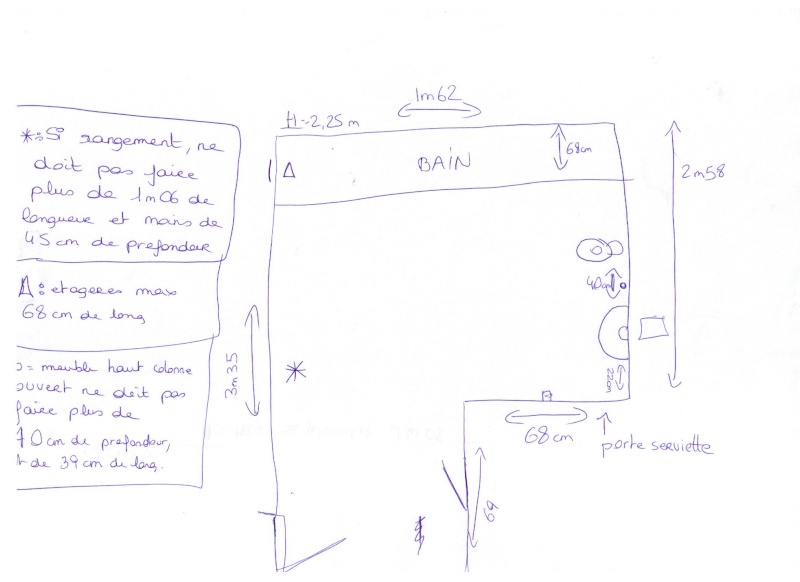 1m62
H=2,25m
*: Si rangement, ne
doit pas faire
plus de 1m06 de
longueur et moins de
45cm de profondeur
Δ: etageres max
68cm de long
= meuble haut colonne
ouvert ne doit pas
faire plus de
70cm de profondeur,
de 39cm de long.
Δ
BAIN
68cm
2m58
40cm
22cm
3m35
*
68cm
porte serviette
69